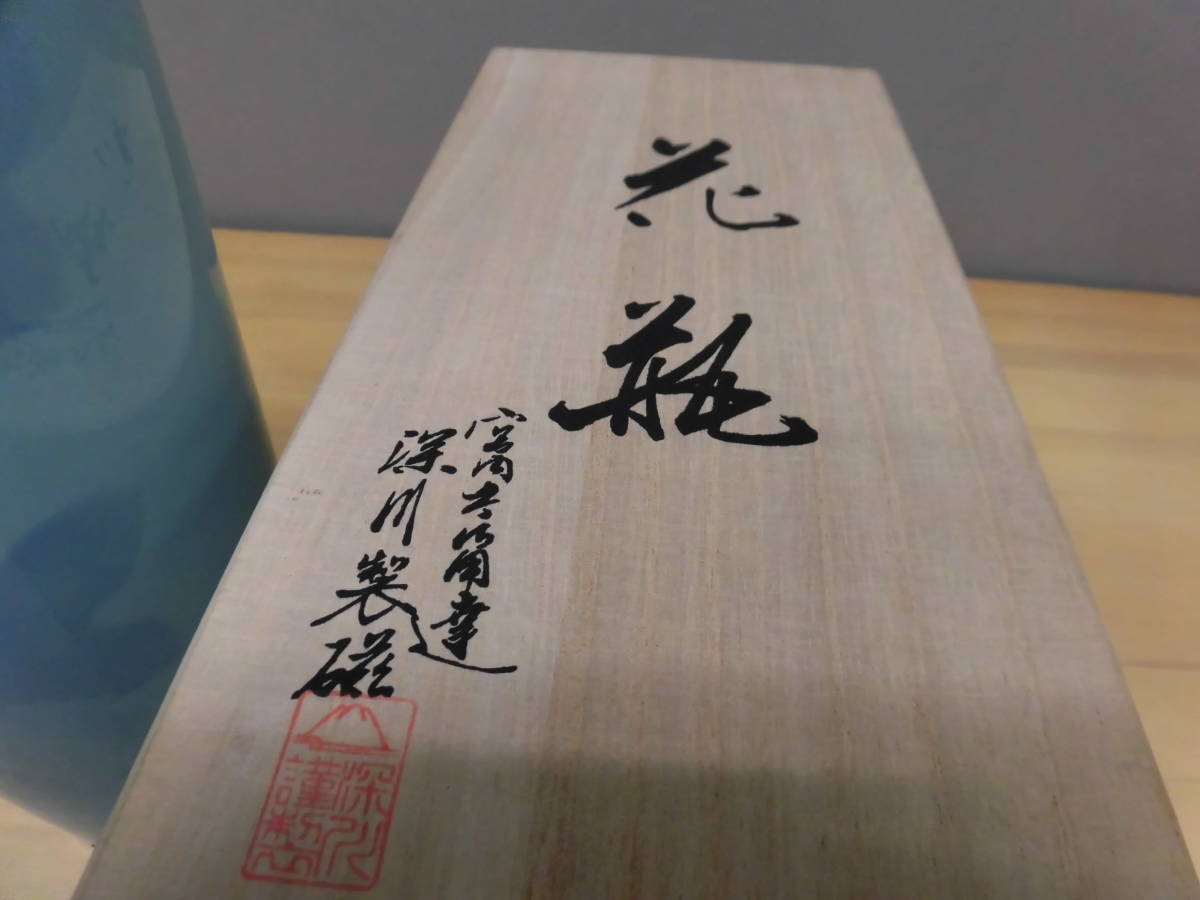 花瓶
宮内庁御用達
深川製磁
深川
謹製